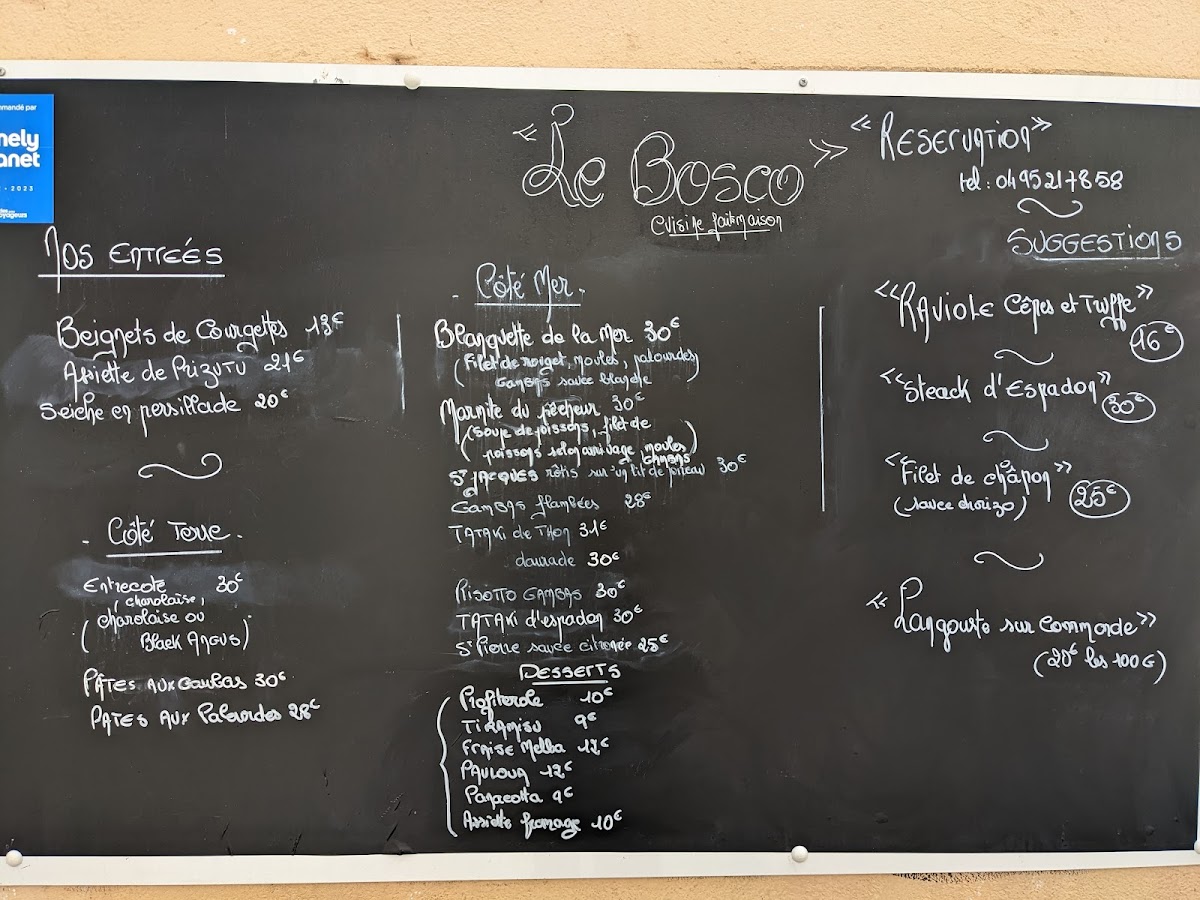 mmandé par
nely
anet
2023
yageurs
« Le Bosco »
Cuisine fait maison
« RESERVATION »
tel : 04 95 21 78 58
SUGGESTIONS
« RAVIOLE Cêpes et Truffe »
16€
« Steack d'Espadon »
30€
« Filet de châpon »
(sauce chorizo)
25€
« Langouste sur commande »
(20€ les 100G)
NOS ENTREÉS
Beignets de Courgettes 13€
Assiette de Prizutu 21€
Seiche en persillade 20€
- Côté Terre -
Entrecote 30€
(charolaise,
charolaise ou
Black Angus)
PÂTES AUX GAMBAS 30€
PATES AUX Palourdes 28€
- Côté Mer -
Blanquette de la Mer 30€
(Filet de rouget, moules, palourdes
GAMBAS sauce blanche)
Marmite du pêcheur 30€
(Soupe de poissons, filet de
poissons selon arrivage, moules
GAMBAS)
St JACQUES rôtis sur un lit de poireau 30€
GAMBAS flambées 28€
TATAKI de Thon 31€
daurade 30€
RISOTTO GAMBAS 30€
TATAKI d'espadon 30€
St Pierre sauce citronée 25€
DESSERTS
Profiterole 10€
TIRAMISU 9€
FRAISE Melba 12€
PAVLOVA 12€
Panacotta 9€
Assiette fromage 10€